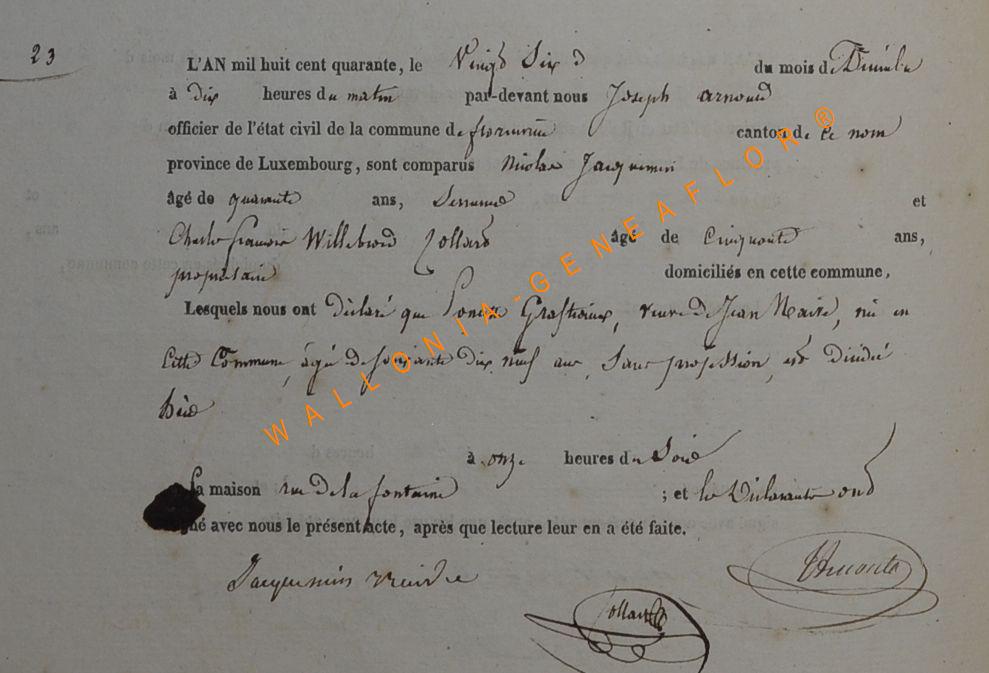 23
L'AN mil huit cent quarante, le Vingt Six du mois de Décembre
à dix heures du matin par-devant nous Joseph arnould
officier de l'état civil de la commune de florenville canton de ce nom
province de Luxembourg, sont comparus Nicolas Jacquemin
âgé de quarante ans, et
Charles françois Willebrord Collard âgé de Cinquante ans,
propriétaire domiciliés en cette commune,
Lesquels nous ont déclaré que Graftiaux, veuve de Jean née en
Cette Commune, âgée de soixante dix neuf ans, Sans profession, est décédée
hier
à onze heures du Soir
sa maison rue de la fontaine ; et les déclarants ont
signé avec nous le présent acte, après que lecture leur en a été faite.
Jacquemin
Collard
WALLONIA-GENEAFLOR®